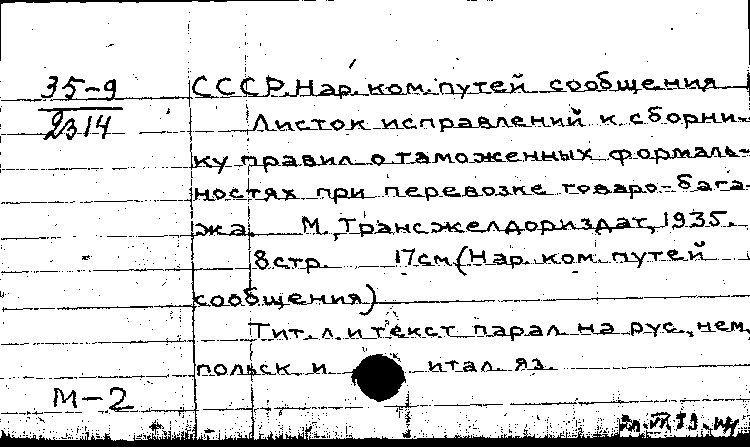 35-9
2314
СССР. Нар. ком. путей сообщения
Листок исправлений к сборни-
ку правил о таможенных формаль-
ностях при перевозке товаро-бага-
жа. М., Трансжелдориздат, 1935.
8 стр. 17 см (Нар. ком. путей
сообщения)
Тит. л. и текст парал. на рус., нем,
польск. и итал. яз.
М-2